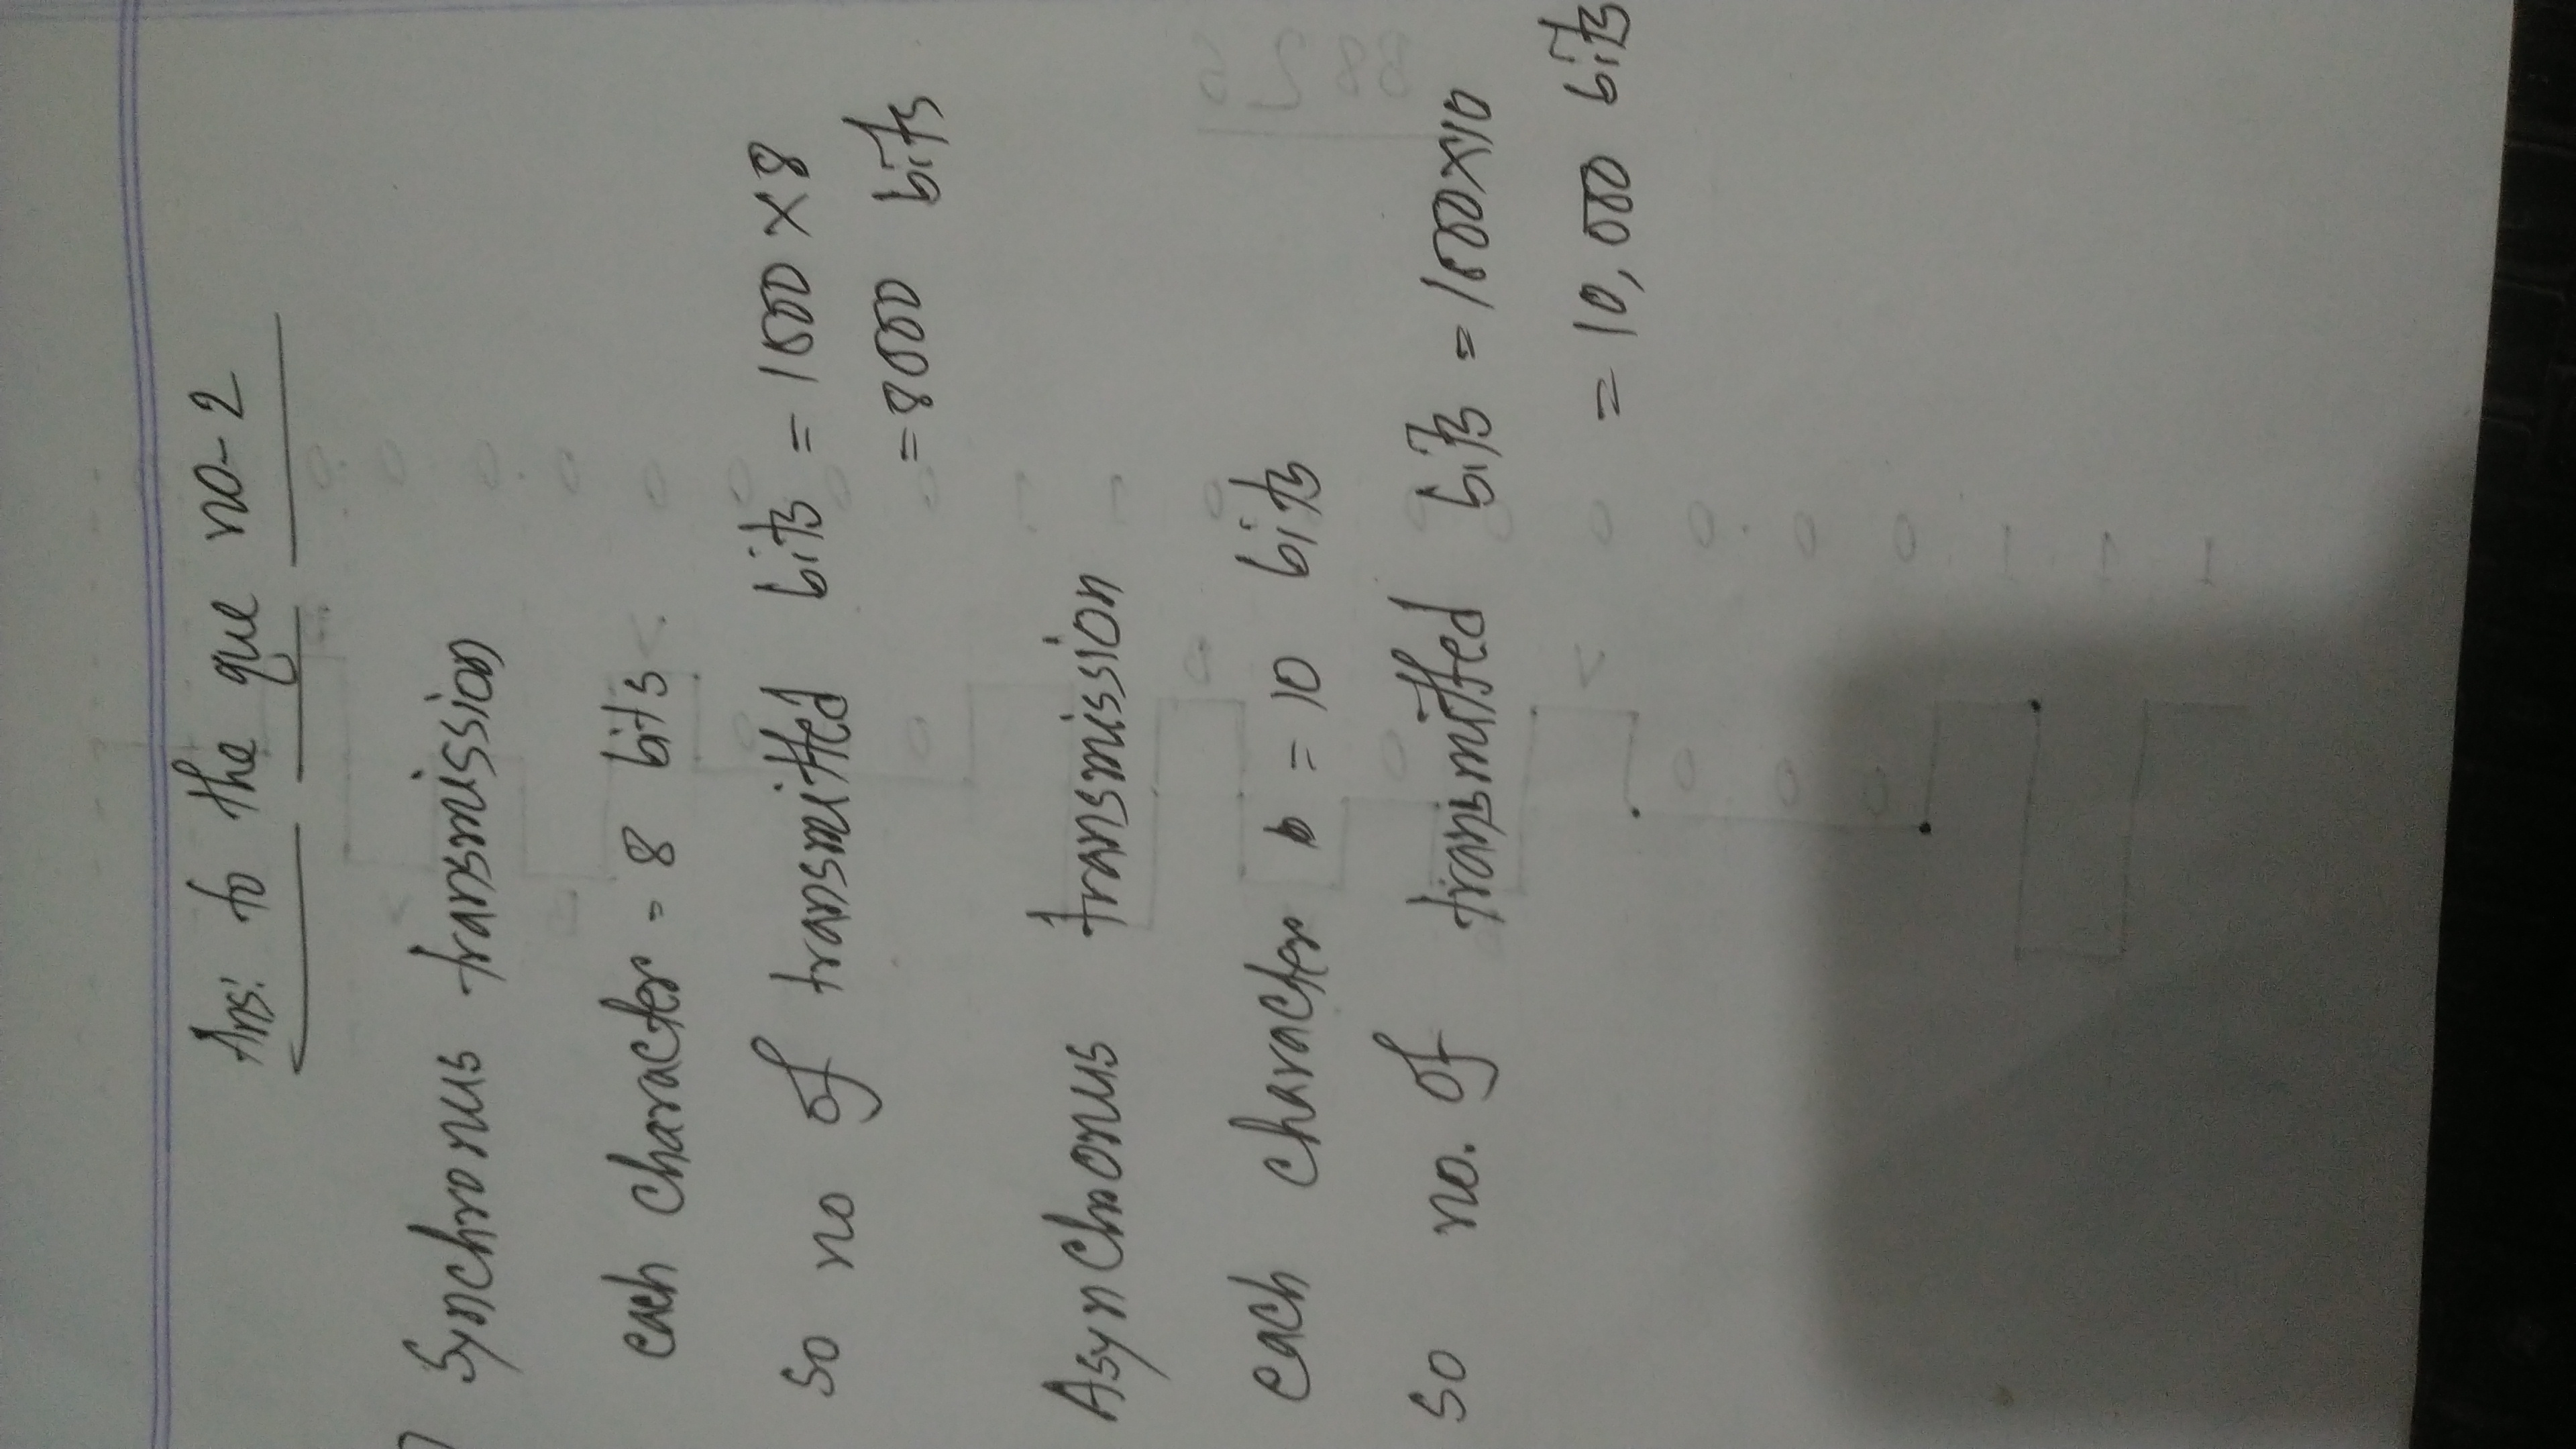 Ans: to the que no-2
Synchronus transmission
each character = 8 bits
so no of transmitted bits = 1000 × 8
= 8000 bits
Asynchronus transmission
each character = 10 bits
so no. of transmitted bits = 1000×10
= 10,000 bits